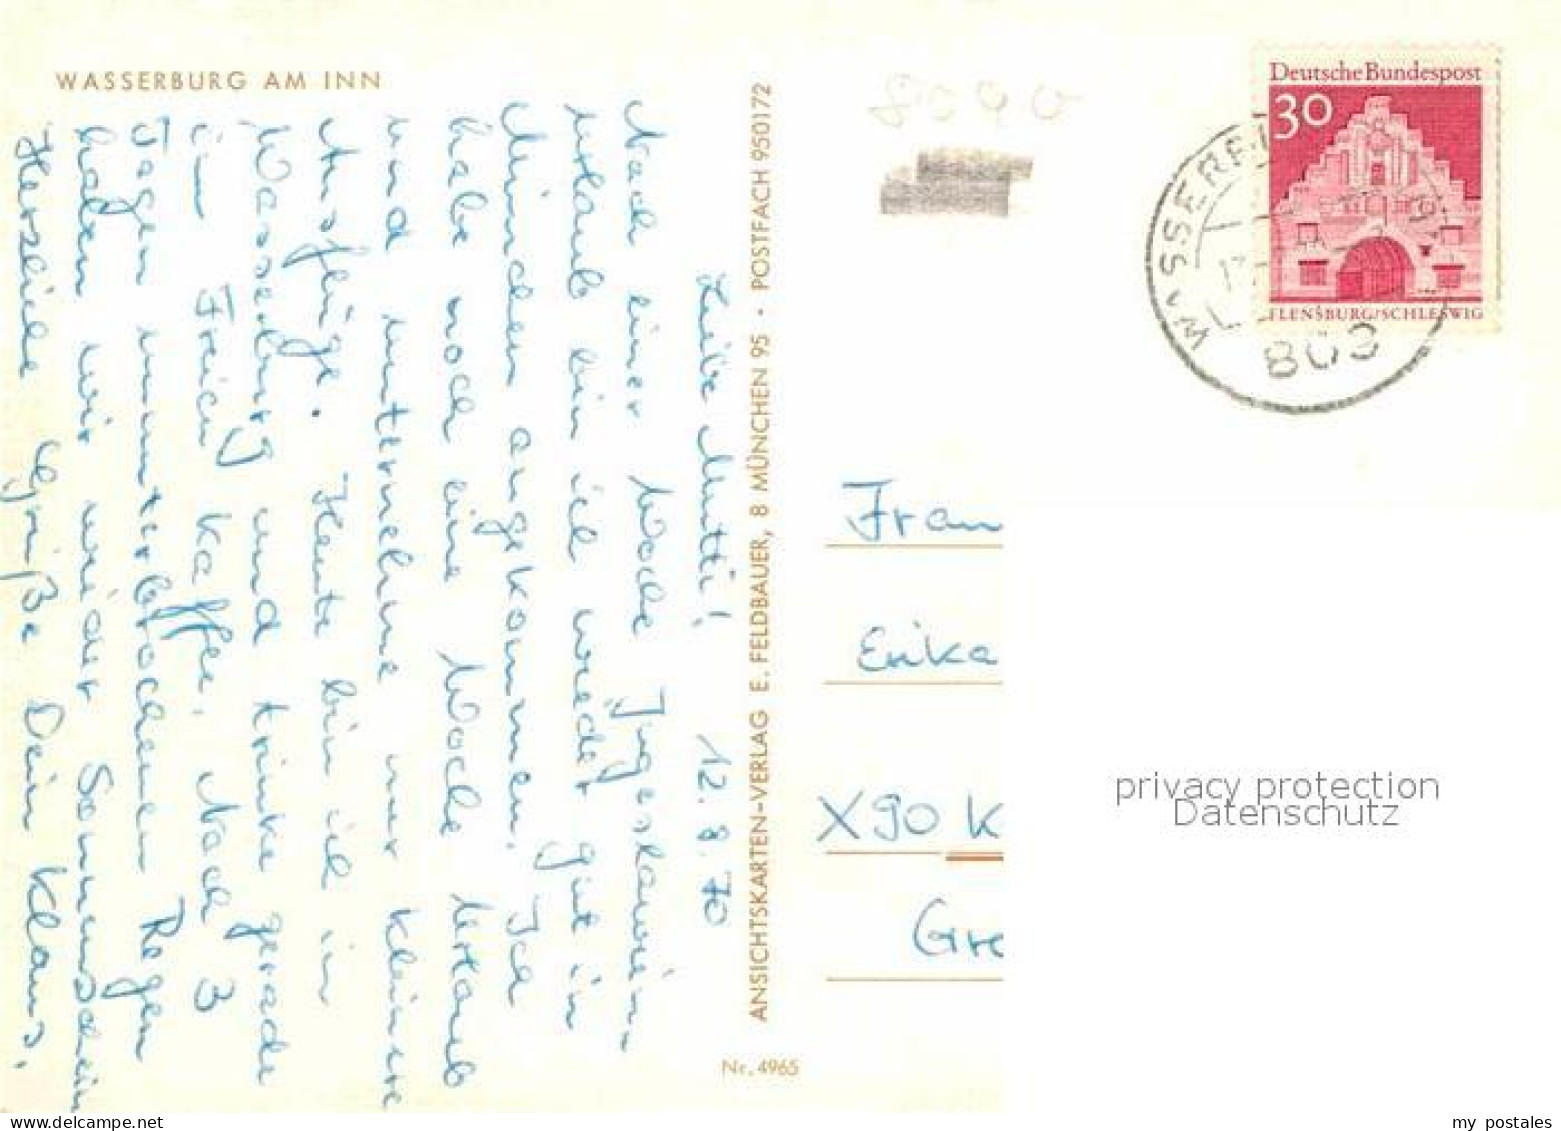 WASSERBURG AM INN
Liebe Mutti! 12.8.70
Nach einer Woche Jugoslawien-
urlaub bin ich wieder gut in
München angekommen. Ich
habe noch eine Woche Urlaub
und unternehme nur kleinere
Ausflüge. Heute bin ich in
Wasserburg und trinke gerade
im Freien Kaffee. Nach 3
Tagen ununterbrochenen Regen
haben wir wieder Sonnenschein
Herzliche Grüße Dein Klaus.
ANSICHTSKARTEN-VERLAG E. FELDBAUER, 8 MÜNCHEN 95 · POSTFACH 950172
Nr. 4965
8090
Deutsche Bundespost
30
FLENSBURG/SCHLESWIG
Frau
Erika
X90 K
Gre
privacy protection
Datenschutz
my postales